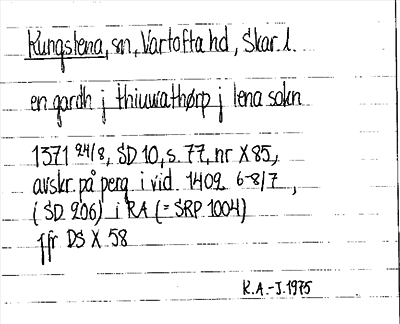 Kungslena, sn, Vartofta hd, Skar. l.
en gardh j thiuuathørp j lena sokn
1371 24/8, SD 10, s. 77, nr X 85,
avskr. på perg. i vid. 1409 6-8/7,
(SD 206) i RA (= SRP 1004)
jfr DS X 58
K.A.-J. 1975